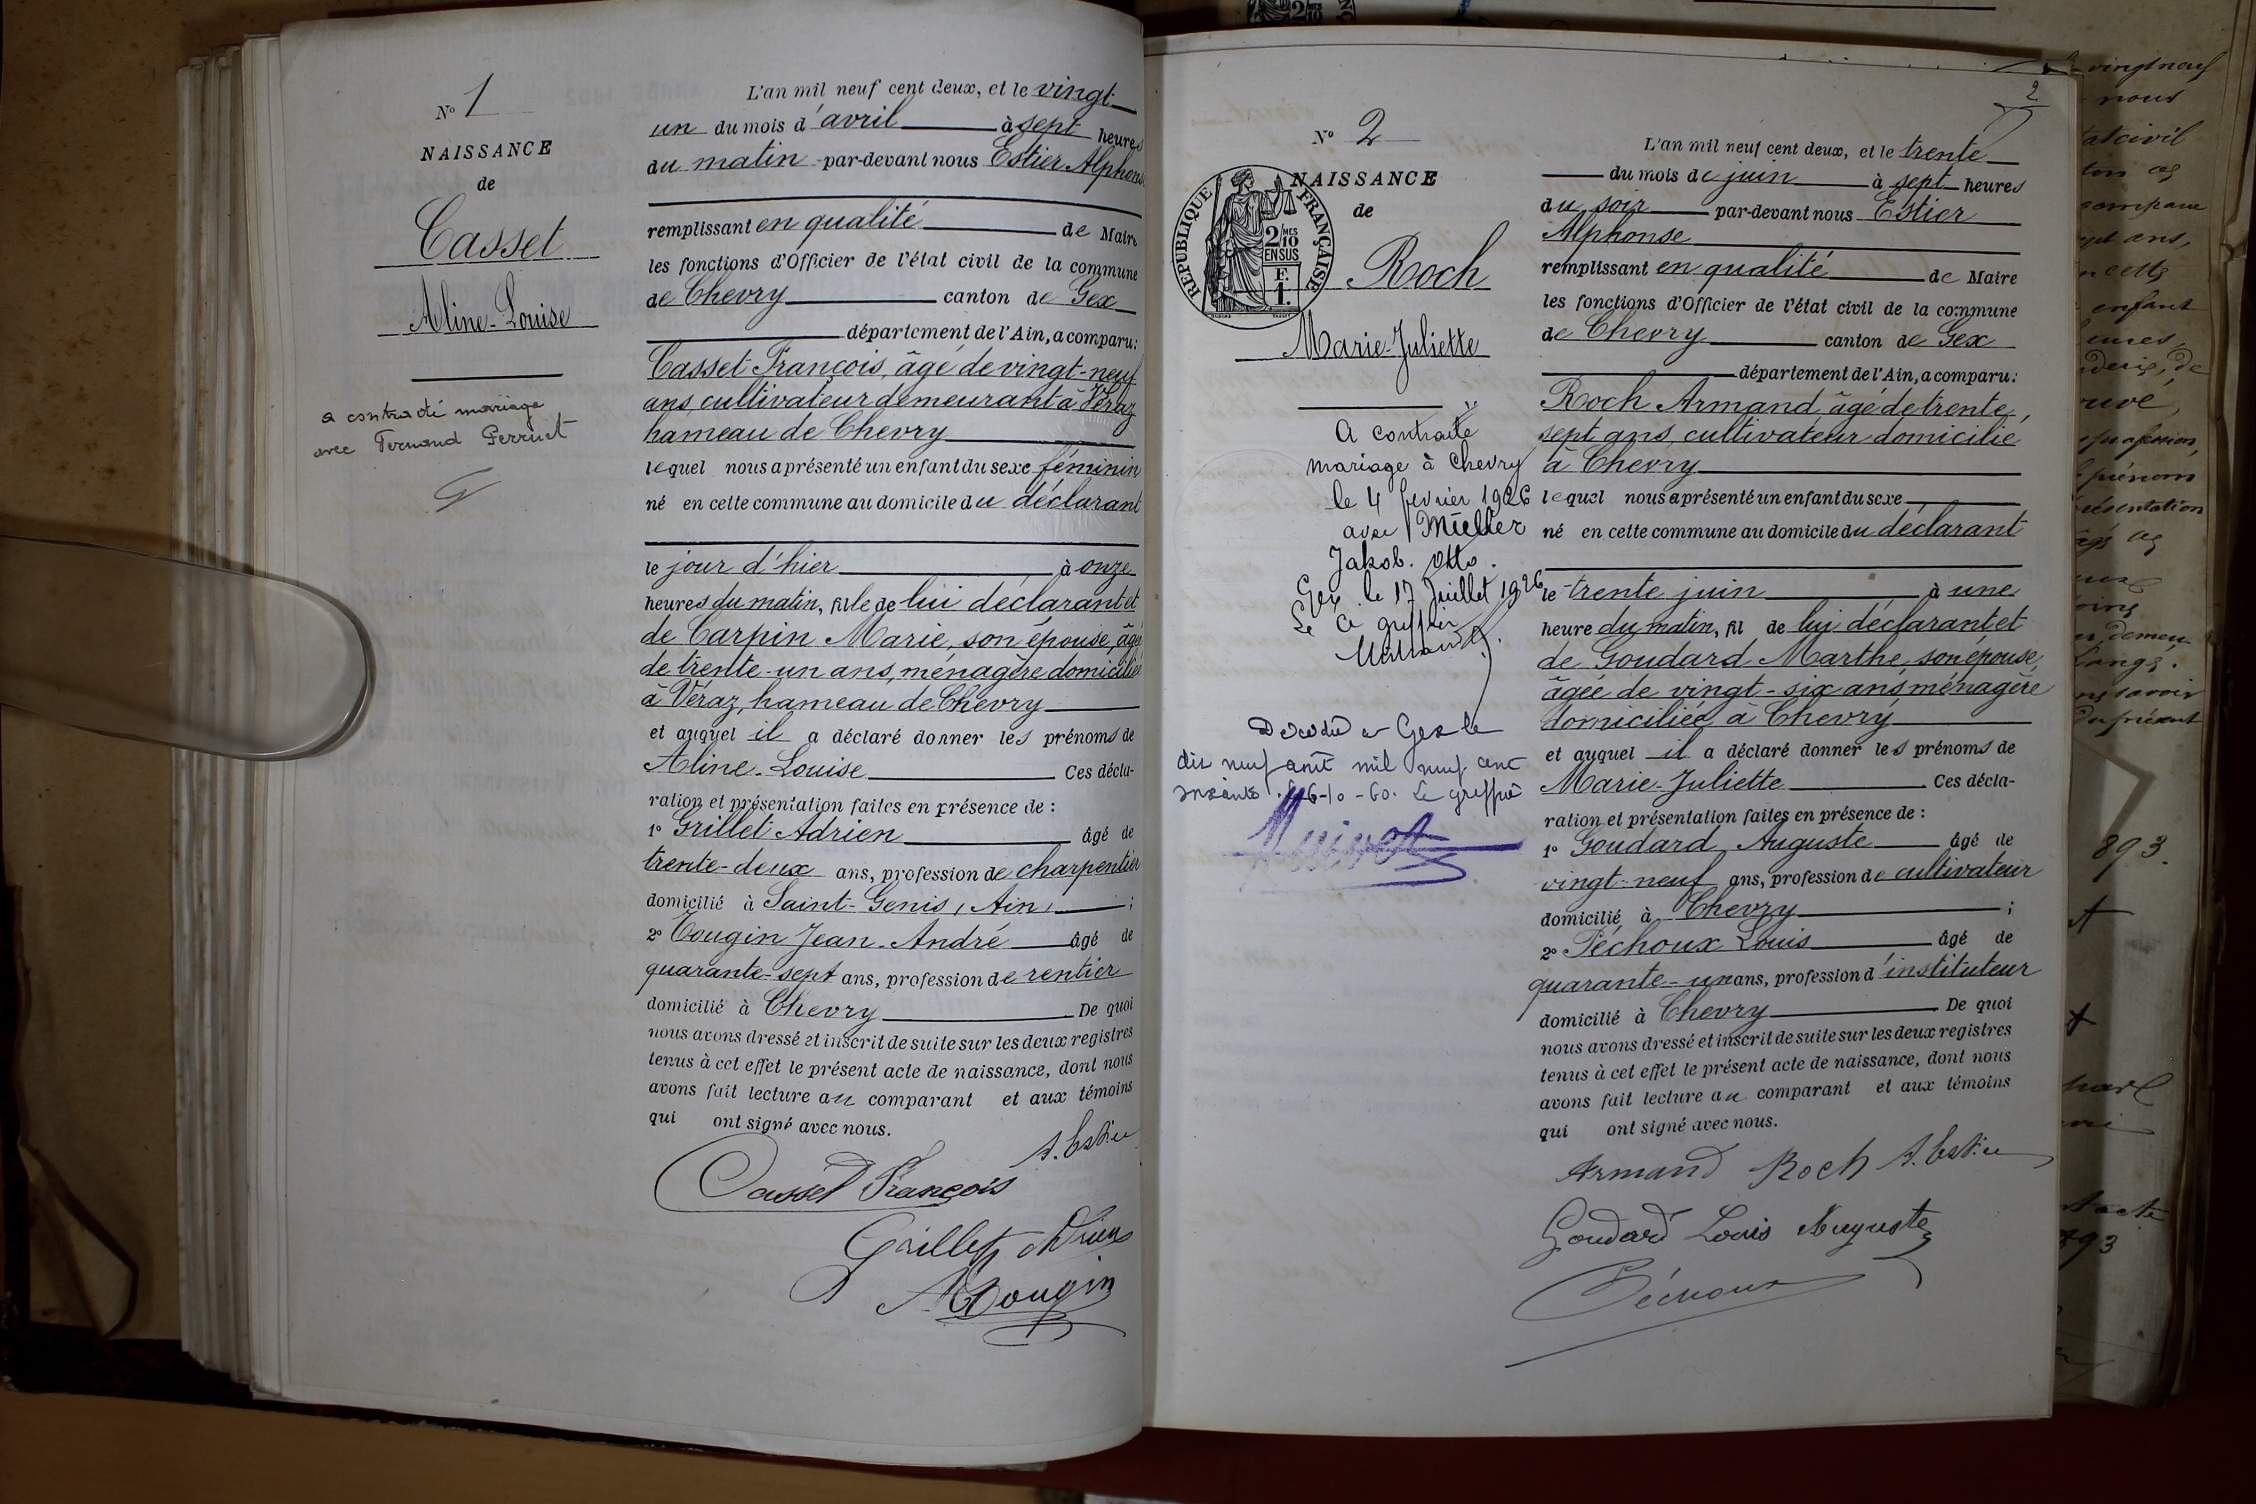 N° 1
NAISSANCE
de
Casset
Aline-Louise
a contracté mariage
avec Fernand Perruet
L'an mil neuf cent deux, et le vingt-
un du mois d'avril à sept heures
du matin par-devant nous Estier Alphonse
remplissant en qualité de Maire
les fonctions d'Officier de l'état civil de la commune
de Chevry canton de Gex
département de l'Ain, a comparu:
Casset François, âgé de vingt-neuf
ans, cultivateur demeurant à Véraz
hameau de Chevry
lequel nous a présenté un enfant du sexe féminin
né en cette commune au domicile du déclarant
le jour d'hier à onze
heures du matin, fille de lui déclarant et
de Carpin Marie, son épouse, âgée
de trente-un ans, ménagère domiciliée
à Véraz, hameau de Chevry
et auquel il a déclaré donner les prénoms de
Aline-Louise Ces décla-
ration et présentation faites en présence de :
1° Grillet Adrien âgé de
trente-deux ans, profession de charpentier
domicilié à Saint-Genis (Ain) ;
2° Tougin Jean-André âgé de
quarante-sept ans, profession de rentier
domicilié à Chevry De quoi
nous avons dressé et inscrit de suite sur les deux registres
tenus à cet effet le présent acte de naissance, dont nous
avons fait lecture au comparant et aux témoins
qui ont signé avec nous.
A. Estier
Casset François
Grillet Adrien
Tougin
2
N° 2
NAISSANCE
de
REPUBLIQUE FRANÇAISE
2/10 MES
EN SUS
F.
1.
Roch
Marie-Juliette
A contracté
mariage à Chevry
le 4 février 1926
avec Mueller
Jakob. Otto.
Gex le 17 Juillet 1926
Le greffier
Décédée à Gex le
dix neuf août mil neuf cent
soixante. 6-10-60. Le greffier
L'an mil neuf cent deux, et le trente
du mois de juin à sept heures
du soir par-devant nous Estier
Alphonse
remplissant en qualité de Maire
les fonctions d'Officier de l'état civil de la commune
de Chevry canton de Gex
département de l'Ain, a comparu:
Roch Armand, âgé de trente
sept ans, cultivateur domicilié
à Chevry
lequel nous a présenté un enfant du sexe
né en cette commune au domicile du déclarant
le trente juin à une
heure du matin, fil de lui déclarant et
de Goudard Marthe, son épouse,
âgée de vingt-six ans ménagère
domiciliée à Chevry
et auquel il a déclaré donner les prénoms de
Marie-Juliette Ces décla-
ration et présentation faites en présence de :
1° Goudard Auguste âgé de
vingt-neuf ans, profession de cultivateur
domicilié à Chevry ;
2° Péchoux Louis âgé de
quarante-un ans, profession d'instituteur
domicilié à Chevry De quoi
nous avons dressé et inscrit de suite sur les deux registres
tenus à cet effet le présent acte de naissance, dont nous
avons fait lecture au comparant et aux témoins
qui ont signé avec nous.
Armand Roch A. Estier
Goudard Louis Auguste
Péchoux
vingt neuf
nous
893.